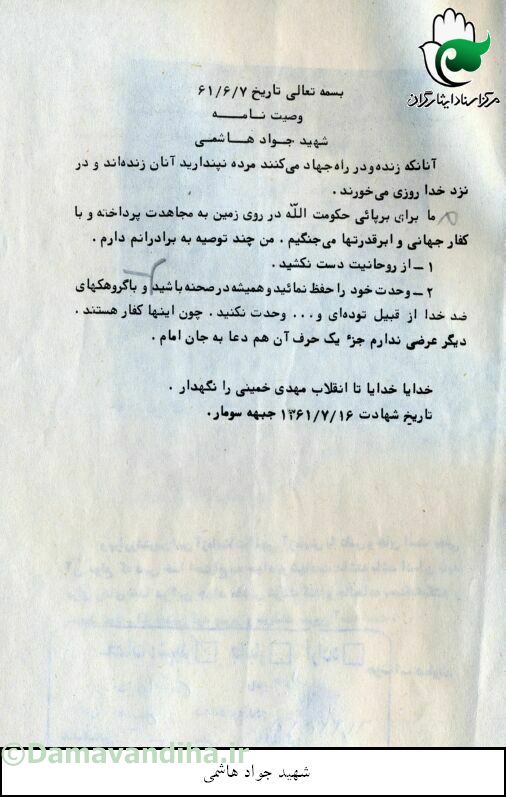 مرکز اسناد ایثارگران
بسمه تعالی تاریخ ۶۱/۶/۷
وصیت نامه
شهید جواد هاشمی
آنانکه زنده و در راه جهاد می‌کنند مرده نپندارید آنان زنده‌اند و در
نزد خدا روزی می‌خورند .
ما برای برپائی حکومت الله در روی زمین به مجاهدت پرداخته و با
کفار جهانی و ابرقدرتها می‌جنگیم . من چند توصیه به برادرانم دارم .
۱ - از روحانیت دست نکشید .
۲ - وحدت خود را حفظ نمائید و همیشه در صحنه باشید و باگروهکهای
ضد خدا از قبیل توده‌ای و ... وحدت نکنید . چون اینها کفار هستند .
دیگر عرضی ندارم جزء یک حرف آن هم دعا به جان امام .
خدایا خدایا تا انقلاب مهدی خمینی را نگهدار .
تاریخ شهادت ۱۳۶۱/۷/۱۶ جبهه سومار.
©Damavandiha.ir
شهید جواد هاشمی